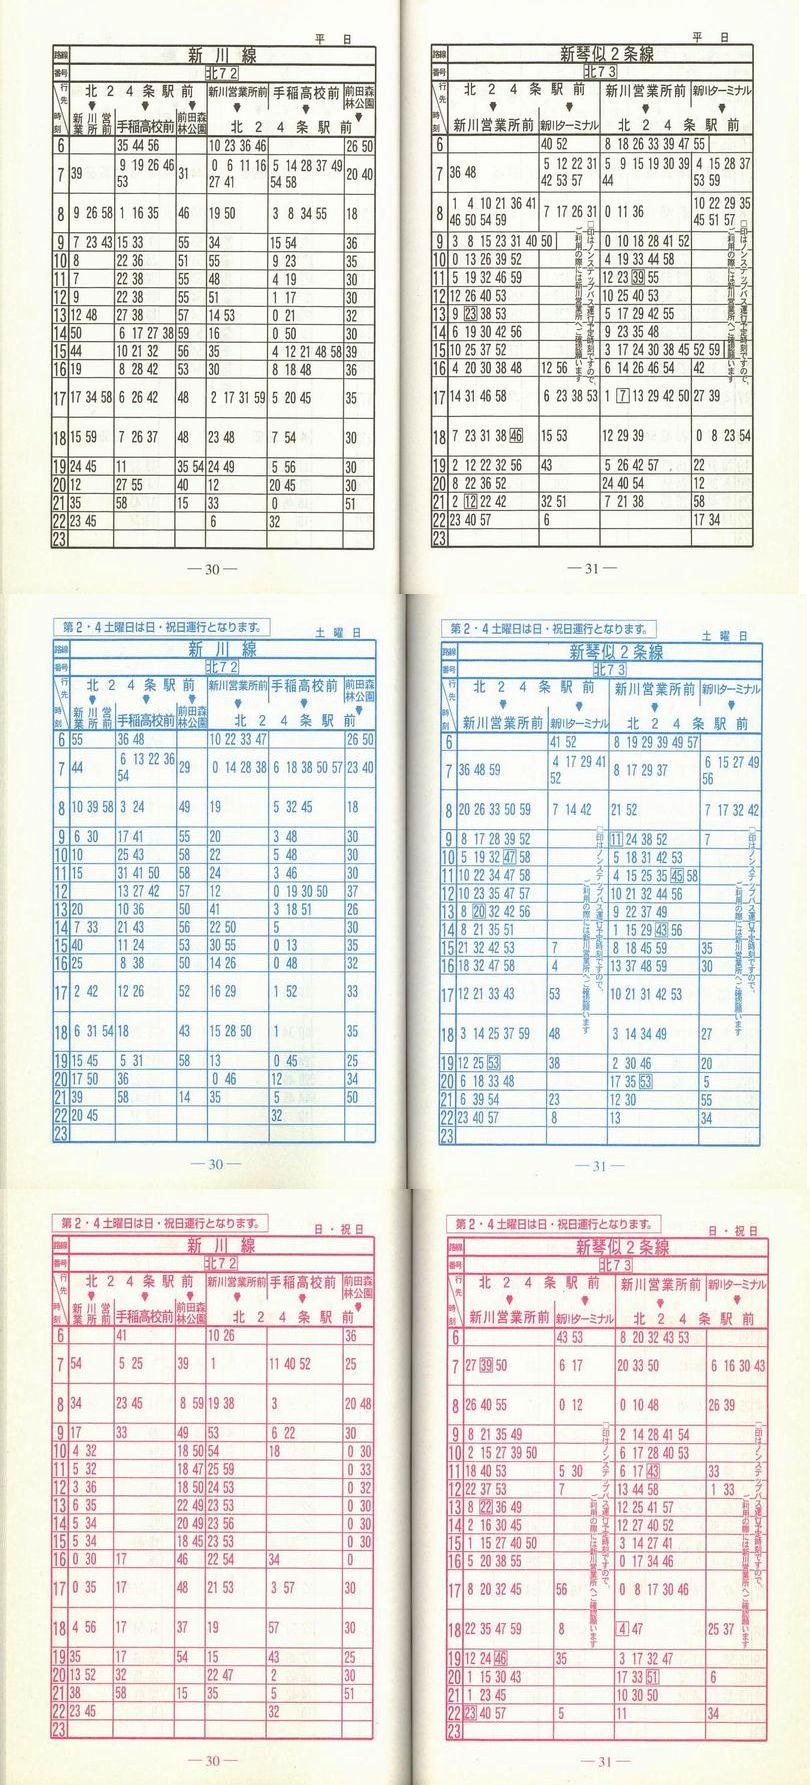 平 日
路線 新 川 線
番号 北72
行先 北 2 4 条 駅 前 新川営業所前 手稲高校前 前田森林公園
時刻 新川営業所前 手稲高校前 前田森林公園 北 2 4 条 駅 前
6 35 44 56 10 23 36 46 26 50
7 39 9 19 26 46 53 31 0 6 11 16 27 41 5 14 28 37 49 54 58 20 40
8 9 26 58 1 16 35 46 19 50 3 8 34 55 18
9 7 23 43 15 33 55 34 15 54 36
10 8 22 36 51 55 9 23 35
11 7 22 38 55 48 4 19 30
12 9 22 38 55 51 1 17 30
13 12 48 27 38 57 14 53 0 21 32
14 50 6 17 27 38 59 16 0 50 30
15 44 10 21 32 56 35 4 12 21 48 58 39
16 19 8 28 42 53 30 8 18 48 36
17 17 34 58 6 26 42 48 2 17 31 59 5 20 45 35
18 15 59 7 26 37 48 23 48 7 54 30
19 24 45 11 35 54 24 49 5 56 30
20 12 27 55 40 12 20 45 30
21 35 58 15 33 0 51
22 23 45 6 32
23
— 30 —
平 日
路線 新琴似2条線
番号 北73
行先 北 2 4 条 駅 前 新川営業所前 新川ターミナル
時刻 新川営業所前 新川ターミナル 北 2 4 条 駅 前
6 40 52 8 18 26 33 39 47 55
7 36 48 5 12 22 31 42 53 57 5 9 15 19 30 39 44 4 15 28 37 53 59
8 1 4 10 21 36 41 46 50 54 59 7 17 26 31 0 11 36 10 22 29 35 45 51 57
9 3 8 15 23 31 40 50 0 10 18 28 41 52
10 0 13 26 39 52 4 19 33 44 58
11 5 19 32 46 59 12 23 39 55
12 12 26 40 53 10 25 40 53
13 9 23 38 53 5 17 29 42 55
14 6 19 30 42 56 9 23 35 48
15 10 25 37 52 3 17 24 30 38 45 52 59
16 4 20 30 38 48 12 56 6 14 26 46 54 42
17 14 31 46 58 6 23 38 53 1 7 13 29 42 50 27 39
18 7 23 31 38 46 15 53 12 29 39 0 8 23 54
19 2 12 22 32 56 43 5 26 42 57 22
20 8 22 36 52 24 40 54 12
21 2 12 22 42 32 51 7 21 38 58
22 23 40 57 6 17 34
23
□印はノンステップバス運行予定時刻ですので、
ご利用の際には新川営業所へご確認願います
□印はノンステップバス運行予定時刻ですので、
ご利用の際には新川営業所へご確認願います
— 31 —
第2・4土曜日は日・祝日運行となります。
土 曜 日
路線 新 川 線
番号 北72
行先 北 2 4 条 駅 前 新川営業所前 手稲高校前 前田森林公園
時刻 新川営業所前 手稲高校前 前田森林公園 北 2 4 条 駅 前
6 55 36 48 10 22 33 47 26 50
7 44 6 13 22 36 54 29 0 14 28 38 6 18 38 50 57 23 40
8 10 39 58 3 24 49 19 5 32 45 18
9 6 30 17 41 55 20 3 48 30
10 10 25 43 58 22 5 48 30
11 15 31 41 50 58 24 3 46 30
12 13 27 42 57 12 0 19 30 50 37
13 20 10 36 50 41 3 18 51 26
14 7 33 21 43 56 22 50 5 30
15 40 11 24 53 30 55 0 13 35
16 25 8 38 50 14 26 0 48 32
17 2 42 12 26 52 16 29 1 52 33
18 6 31 54 18 43 15 28 50 1 35
19 15 45 5 31 58 13 0 45 25
20 17 50 36 0 46 12 34
21 39 58 14 35 5 50
22 20 45 32
23
— 30 —
第2・4土曜日は日・祝日運行となります。
土 曜 日
路線 新琴似2条線
番号 北73
行先 北 2 4 条 駅 前 新川営業所前 新川ターミナル
時刻 新川営業所前 新川ターミナル 北 2 4 条 駅 前
6 41 52 8 19 29 39 49 57
7 36 48 59 4 17 29 41 52 8 17 29 37 6 15 27 49 56
8 20 26 33 50 59 7 14 42 21 52 7 17 32 42
9 8 17 28 39 52 11 24 38 52 7
10 5 19 32 47 58 5 18 31 42 53
11 10 22 34 47 58 4 15 25 35 45 58
12 10 23 35 47 57 10 21 32 44 56
13 8 20 32 42 56 9 22 37 49
14 8 21 35 51 1 15 29 43 56
15 21 32 42 53 7 8 18 45 59 35
16 18 32 47 58 4 13 37 48 59 30
17 12 21 33 43 53 10 21 31 42 53
18 3 14 25 37 59 48 3 14 34 49 27
19 12 25 53 38 2 30 46 20
20 6 18 33 48 17 35 53 5
21 6 39 54 23 12 30 55
22 23 40 57 8 13 34
23
□印はノンステップバス運行予定時刻ですので、
ご利用の際には新川営業所へご確認願います
□印はノンステップバス運行予定時刻ですので、
ご利用の際には新川営業所へご確認願います
— 31 —
第2・4土曜日は日・祝日運行となります。
日・祝日
路線 新 川 線
番号 北72
行先 北 2 4 条 駅 前 新川営業所前 手稲高校前 前田森林公園
時刻 新川営業所前 手稲高校前 前田森林公園 北 2 4 条 駅 前
6 41 10 26 36
7 54 5 25 39 1 11 40 52 25
8 34 23 45 8 59 19 38 3 20 48
9 17 33 49 53 6 22 30
10 4 32 18 50 54 18 0 30
11 5 32 18 47 25 59 0 33
12 3 36 18 50 24 53 0 32
13 6 35 22 49 23 53 0 30
14 5 34 20 49 23 56 0 30
15 5 34 18 45 23 53 0 30
16 0 30 17 46 22 54 34 0
17 0 35 17 48 21 53 3 57 30
18 4 56 17 37 19 57 30
19 35 17 54 15 43 25
20 13 52 32 22 47 2 30
21 38 58 15 35 5 51
22 23 45 32
23
— 30 —
第2・4土曜日は日・祝日運行となります。
日・祝日
路線 新琴似2条線
番号 北73
行先 北 2 4 条 駅 前 新川営業所前 新川ターミナル
時刻 新川営業所前 新川ターミナル 北 2 4 条 駅 前
6 43 53 8 20 32 43 53
7 27 39 50 6 17 20 33 50 6 16 30 43
8 26 40 55 0 12 0 10 48 26 39
9 8 21 35 49 2 14 28 41 54
10 2 15 27 39 50 6 17 28 40 53
11 18 40 53 5 30 6 17 43 33
12 22 37 53 7 13 44 58 1 33
13 8 22 36 49 12 25 41 57
14 2 16 30 45 12 27 40 52
15 1 15 27 40 50 3 14 27 41
16 5 20 38 55 0 17 34 46
17 8 20 32 45 56 0 8 17 30 46
18 22 35 47 59 8 4 47 25 37
19 12 24 46 35 3 17 32 47
20 1 15 30 43 17 33 51 6
21 1 23 45 10 30 50
22 23 40 57 5 11 34
23
□印はノンステップバス運行予定時刻ですので、
ご利用の際には新川営業所へご確認願います
□印はノンステップバス運行予定時刻ですので、
ご利用の際には新川営業所へご確認願います
— 31 —